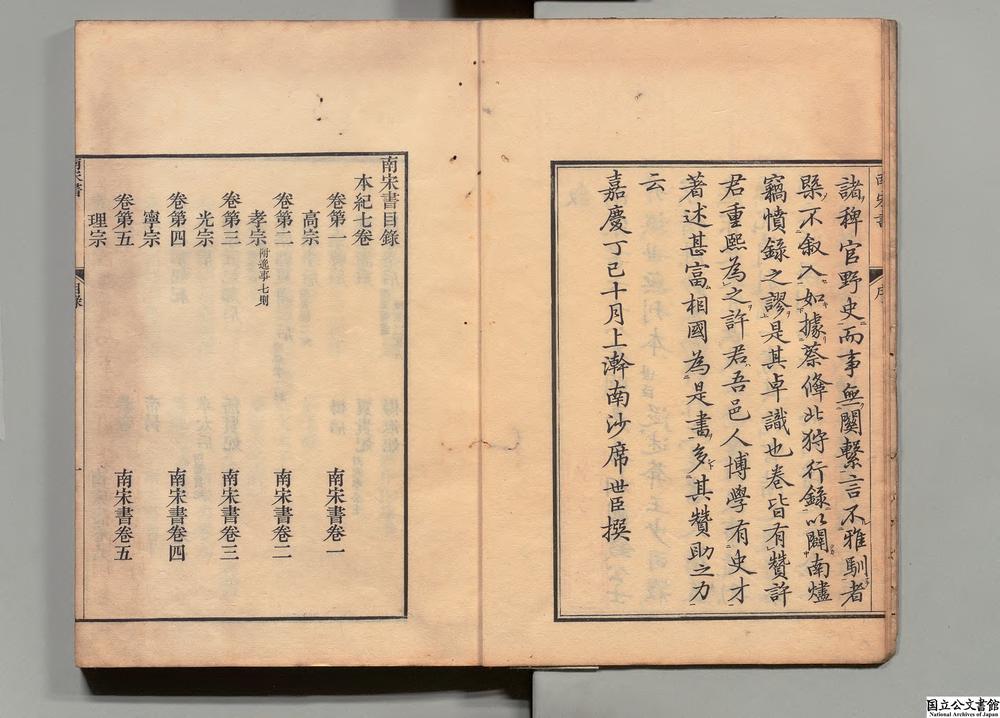 諸稗官野史而事無關繫言不雅馴者
槩不叙入如據蔡絛北狩行錄以闢南燼
竊憤錄之謬是其卓識也卷皆有贊許
君重熙為之許君吾邑人博學有史才
著述甚富相國為是書多其贊助之力
云
嘉慶丁巳十月上澣南沙席世臣撰
序
南宋書目錄
本紀七卷
卷第一 南宋書卷一
高宗
卷第二 南宋書卷二
孝宗 附逸事七則
卷第三 南宋書卷三
光宗
卷第四 南宋書卷四
寧宗
卷第五 南宋書卷五
理宗
南宋書 目錄 一
国立公文書館
National Archives of Japan